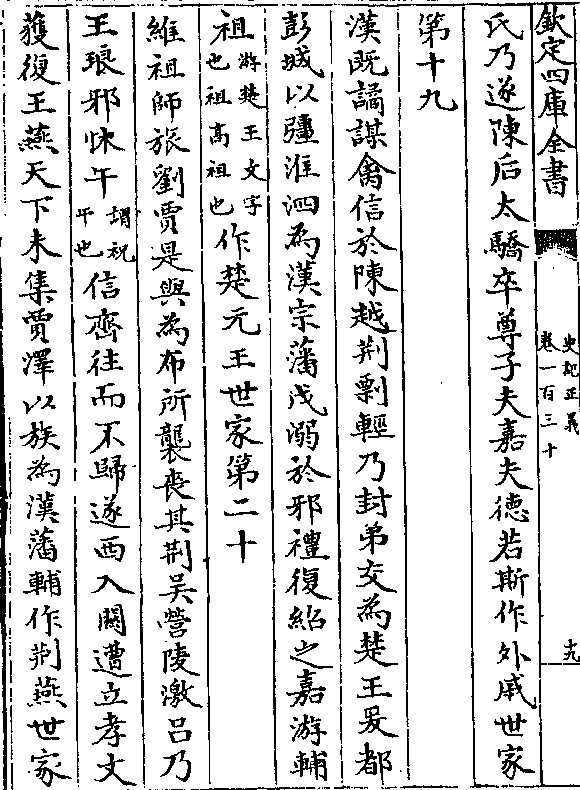 欽定四庫全書
史記正義
卷一百三十
十九
氏乃遂陳后太驕卒尊子夫嘉夫德若斯作外戚世家
第十九
漢既譎謀禽信於陳越荆剽輕乃封弟交為楚王爰都
彭城以彊淮泗為漢宗藩戊溺於邪禮復紹之嘉游輔
祖游楚王文字也祖高祖也作楚元王世家第二十
維祖師旅劉賈是與為布所襲喪其荆吳營陵激呂乃
王琅邪怵午謂祝午也信齊往而不歸遂西入關遭立孝文
獲復王燕天下未集賈澤以族為漢藩輔作荆燕世家